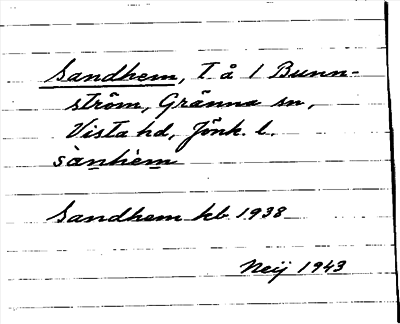 Sandhem, T å 1 Bunn-
ström, Gränna sn,
Vista hd, Jönk. l.
sànhèm
Sandhem kb 1938
Neij 1943